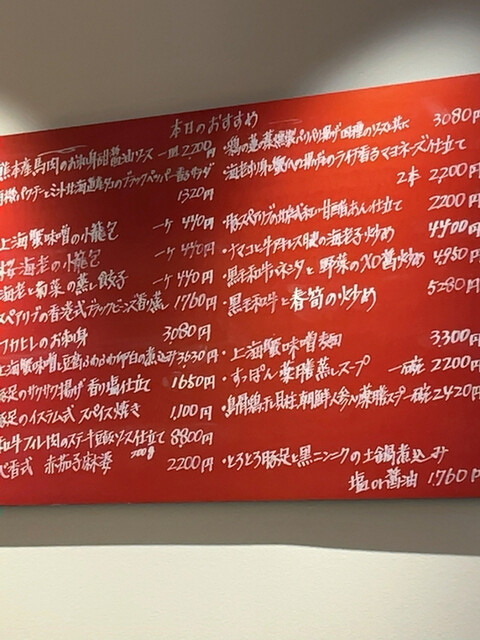 本日のおすすめ
熊本産馬肉のお刺身甜醤油ソース 一皿 2,200円
1320円
上海蟹味噌の小籠包 一ケ 440円
桜海老の小籠包 一ケ 440円
海老と菊菜の蒸し餃子 一ケ 440円
スペアリブの香港式ブラックビーンズ香り蒸し 1760円
フカヒレのお刺身 3080円
上海蟹味噌と豆腐 卵白の煮込み 3630円
豚足のサクサク揚げ香り塩仕立て 1650円
豚足のイスラム式 スパイス焼き 1,100円
和牛フィレ肉のステーキ豆豉ソース仕立て 8800円
200g
式 赤茄子麻婆 2200円
3080円
マヨネーズ仕立て
2本 2,200円
・豚スペアリブの あん仕立て 2200円
・ナマコと牛アキレス腱の海老子炒め 4400円
・黒毛和牛 と野菜のXO醤炒め 4950円
・黒毛和牛と春筍の炒め 5280円
・上海蟹味噌麺 3300円
・すっぽん薬膳蒸しスープ 一碗 2200円
・烏骨鶏、干し貝柱、朝鮮人参入薬膳スープ 一碗 2420円
・とろとろ豚足と黒ニンニクの土鍋煮込み
塩or醤油 1760円